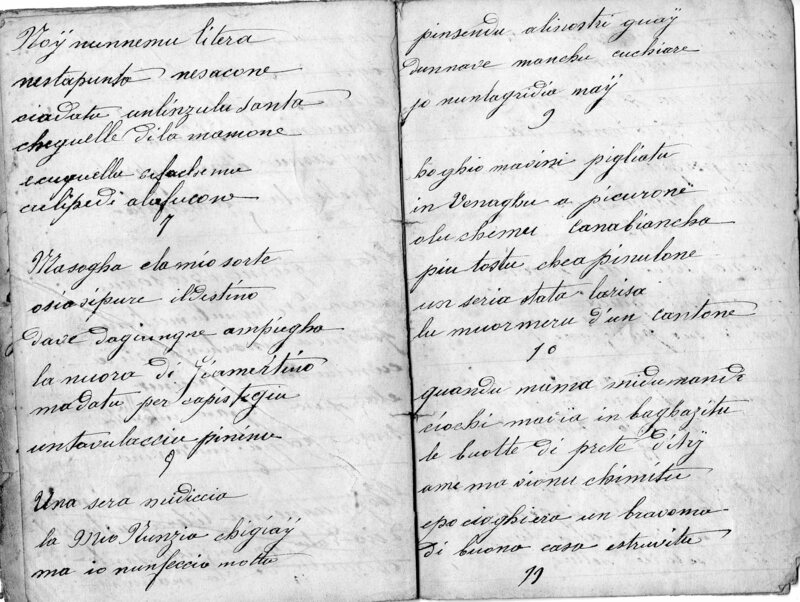 Noÿ nunnemu litera
nestapunta nesacone
ciadatu unlinzula santa
cheguelle dila mamone
ecuquella
culipedi alafucone
7
Masogha elamio sorte
osiasipure ildestino
dave dagiungne ampiegha
la nuora di
madatu per capistegiu
untavulacciu pininu
9
Una sera midiccia
la Mio Nunzia chigiaÿ
ma io nunfeccio motta
pinsendu alinostri guaÿ
dunnave manchu cuchiare
jo nuntagridia maÿ
9
hoghio mavini pigliata
in Venaghu a picurone
olu chemu canabiancha
piu tostu chea pinulone
un seria stata larisa
lu muormeru d'un cantone
10
quandu mama midemandi
ciochi mavia in baghazitu
le buotte di prete
ane ma vionu chimitu
epocioghiera un bravomu
di buona casa estruvitu
11